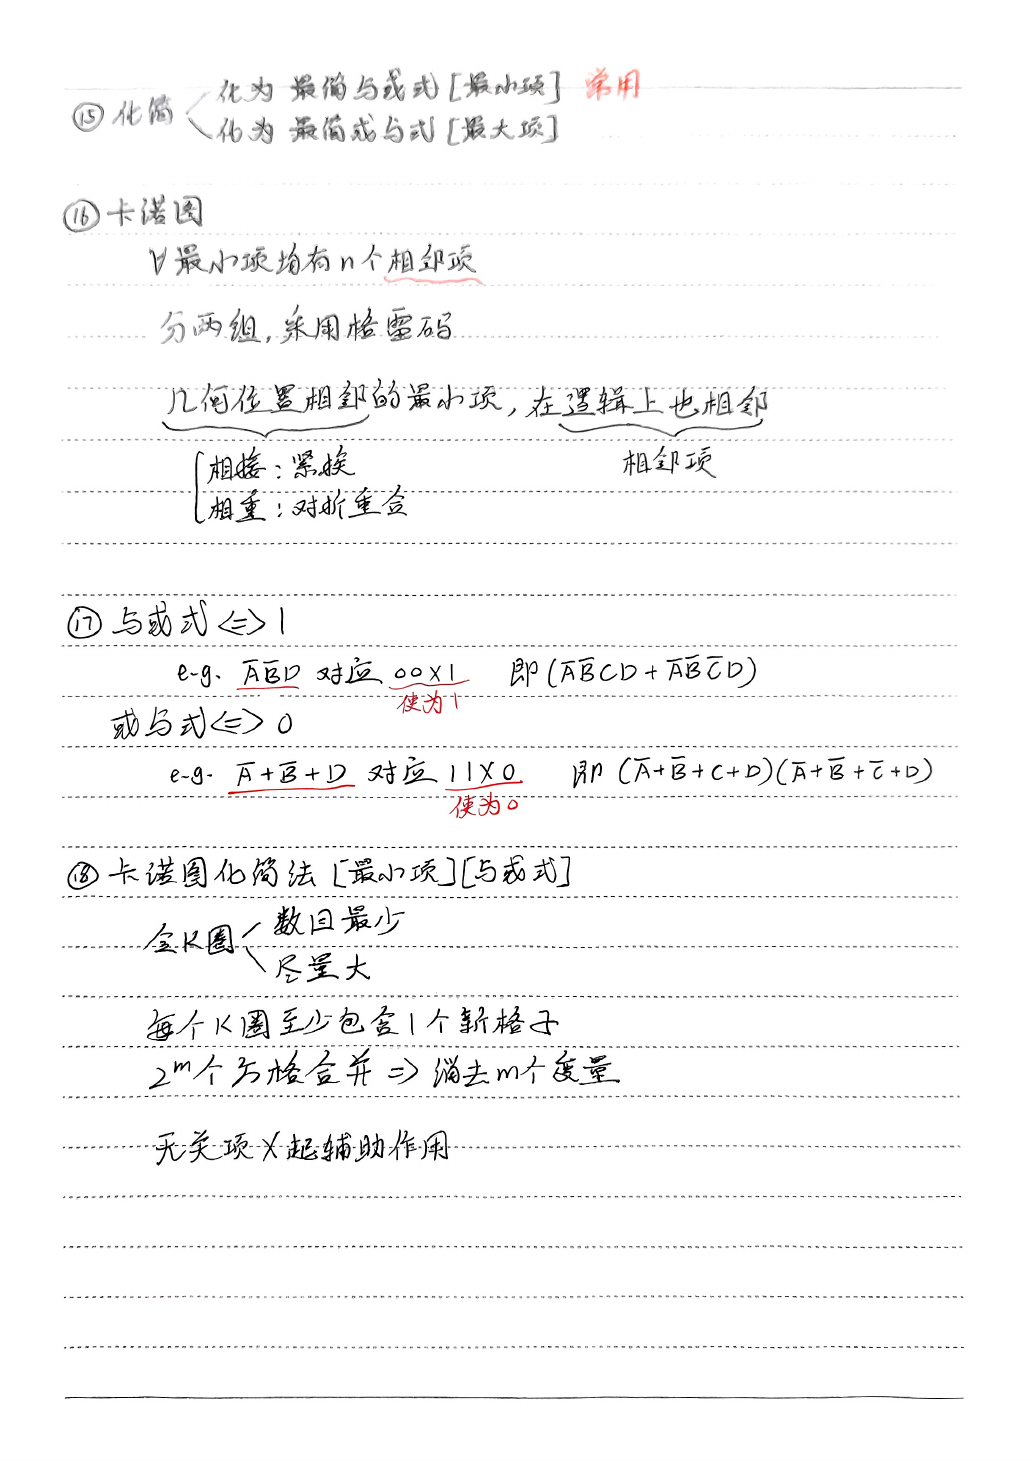 ⑮ 化简
化为 最简与或式 [最小项] 常用
化为 最简或与式 [最大项]
⑯ 卡诺图
∀最小项均有n个相邻项
分两组, 采用格雷码
几何位置相邻的最小项, 在逻辑上也相邻
相接: 紧挨
相邻项
相重: 对折重合
⑰ 与或式 <=> 1
e.g. A̅B̅D 对应 00X1 即 (A̅B̅CD + A̅B̅C̅D)
使为1
或与式 <=> 0
e.g. A̅+B̅+D 对应 11X0 即 (A̅+B̅+C+D)(A̅+B̅+C̅+D)
使为0
⑱ 卡诺图化简法 [最小项][与或式]
数目最少
画K圈
尽量大
每个K圈至少包含1个新格子
2ᵐ个方格合并 => 消去m个变量
无关项X起辅助作用